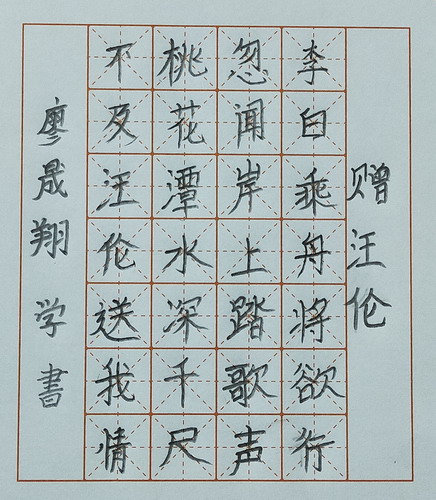 赠汪伦
李白乘舟将欲行
忽闻岸上踏歌声
桃花潭水深千尺
不及汪伦送我情
廖晟翔学書